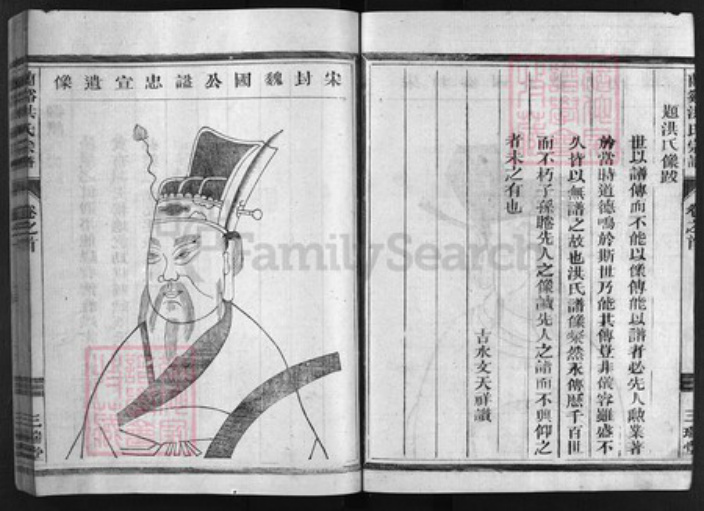 題洪氏像跋
世以譜傳而不能以像傳能以譜者必先人勳業著
於當時道德鳴於斯世乃能其傳豈非儀容雖盛不
久皆以無譜之故也洪氏譜像燦然永傳歷千百世
而不朽子孫睹先人之像誦先人之譜而不興仰之
者未之有也
吉水文天祥讚
宋封魏國公謚忠宣遺像
洪氏宗譜
卷之首
三瑞堂
FamilySearch